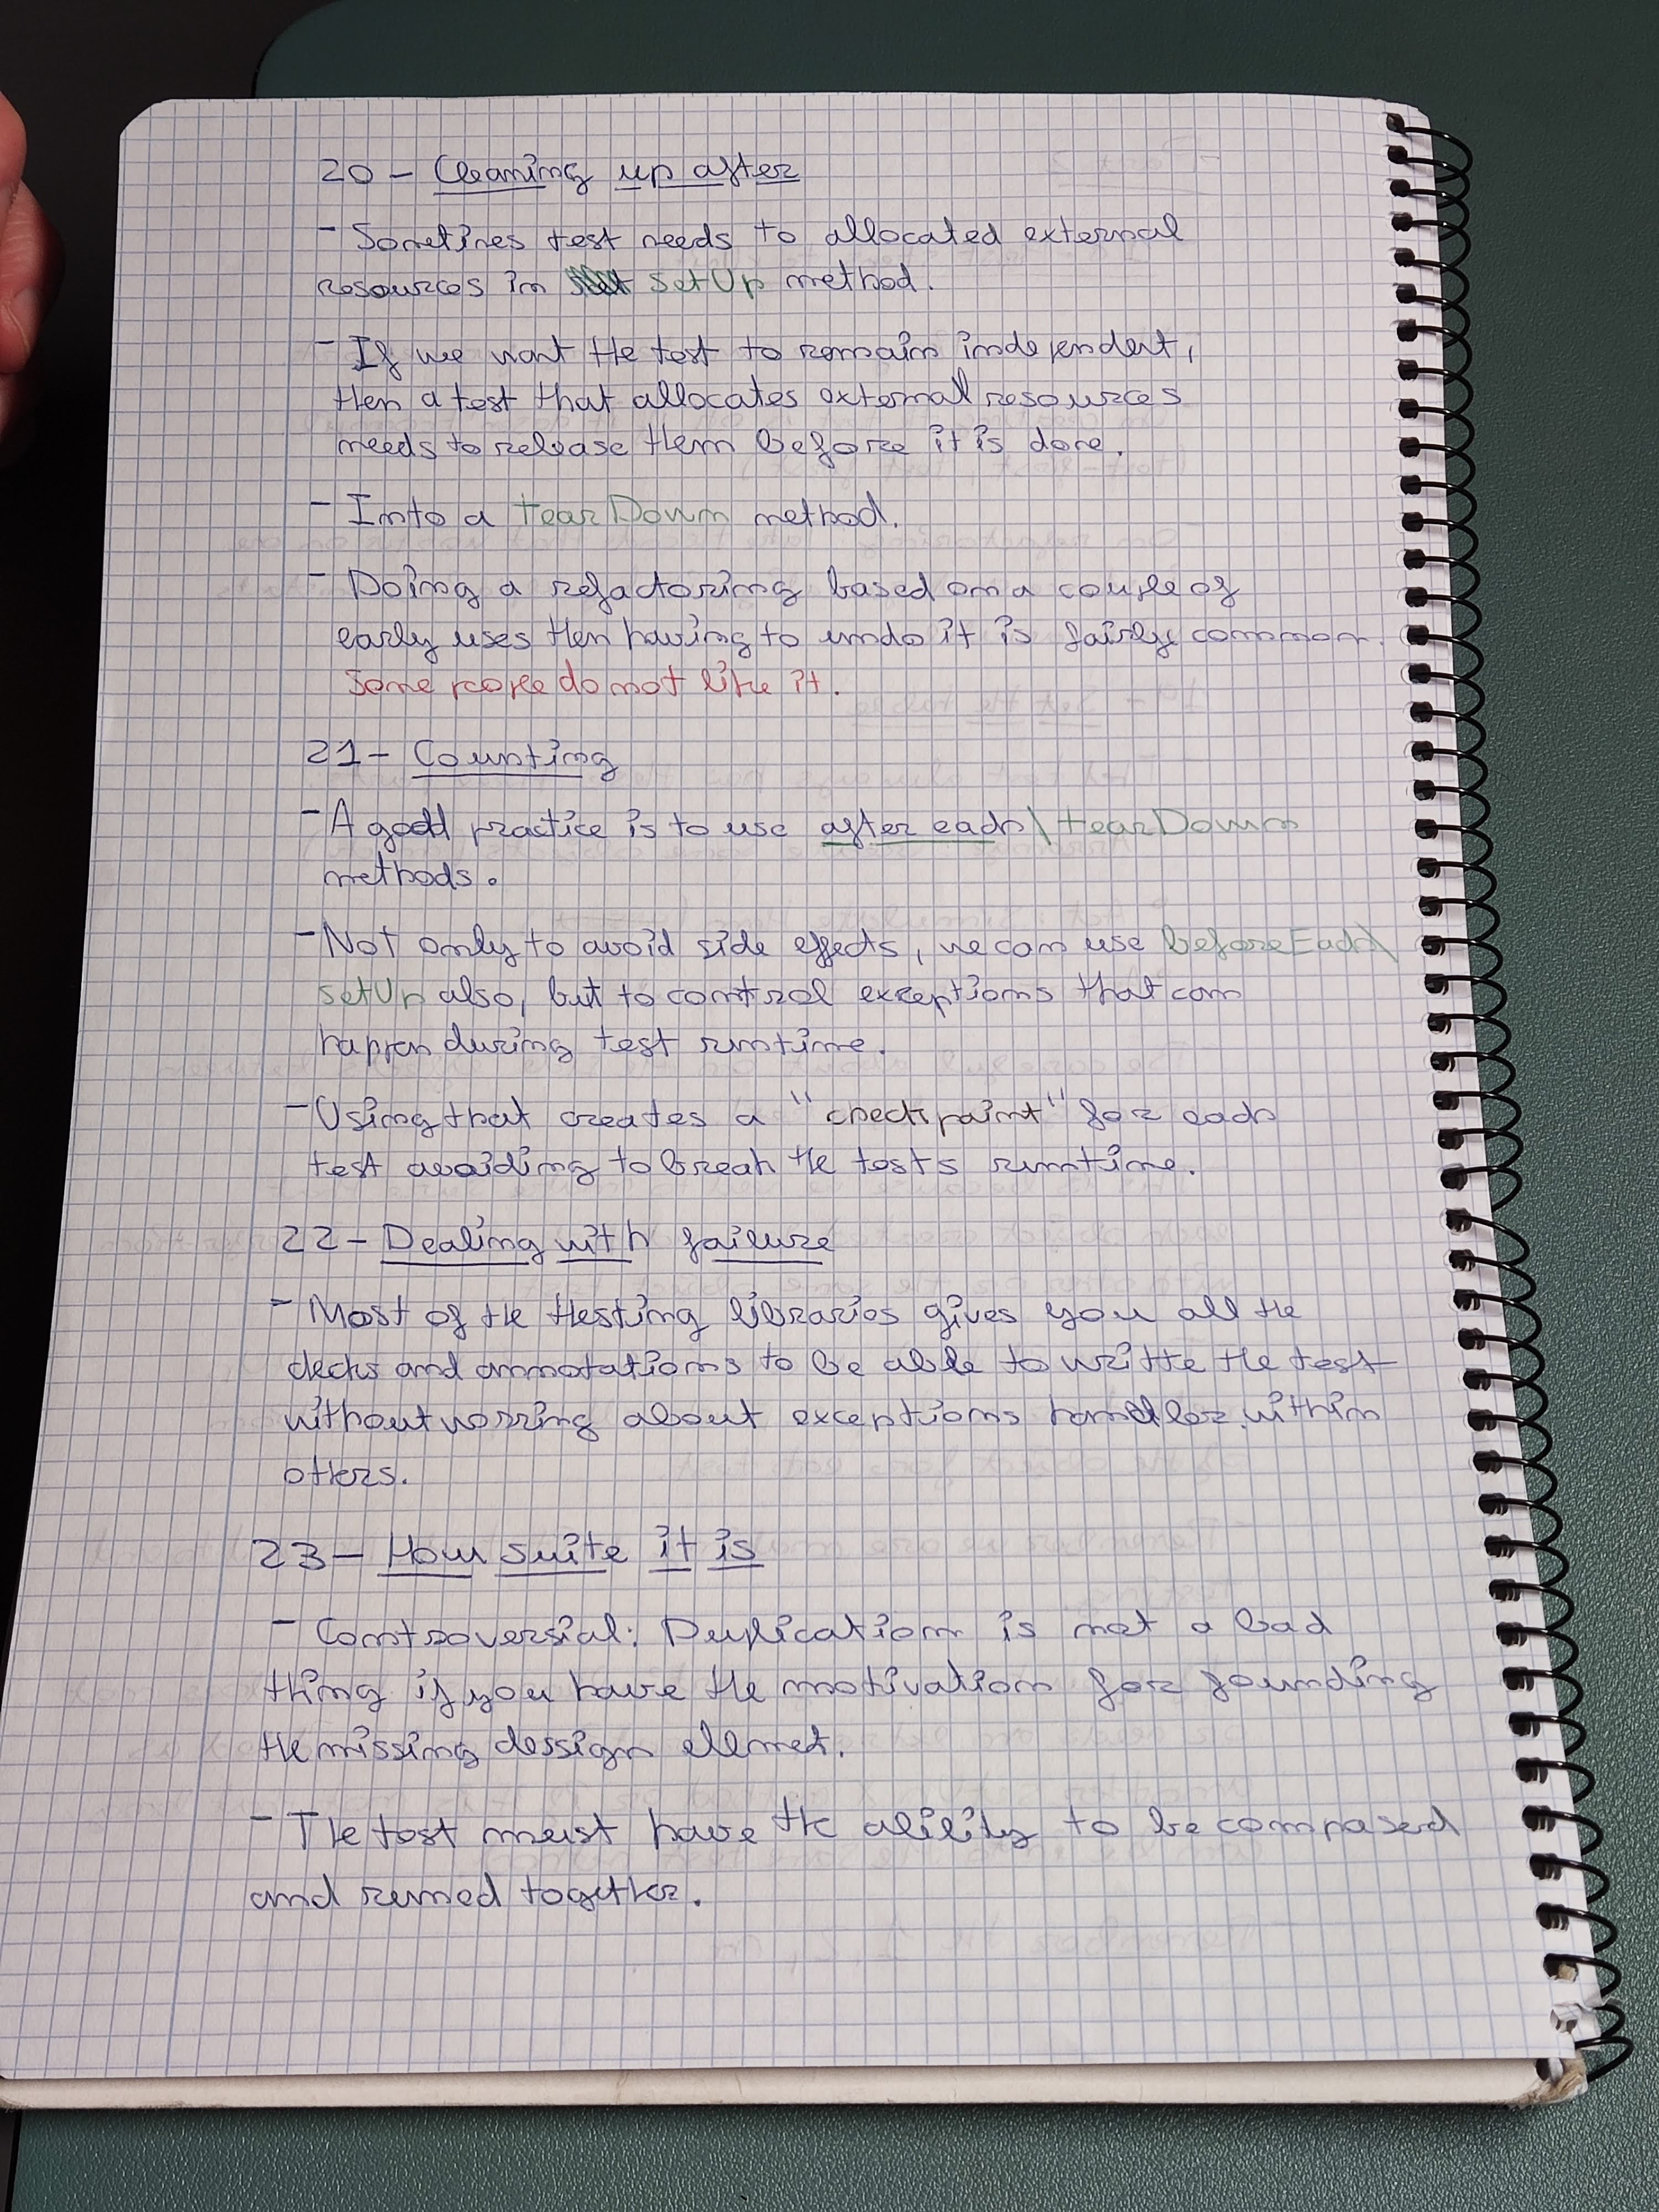 20 - Cleaning up after
- Sometimes test needs to allocated external
resources in setUp method.
- If we want the test to remain independent,
then a test that allocates external resources
needs to release them before it is done.
- Into a tearDown method.
- Doing a refactoring based on a couple of
early uses then having to undo it is fairly common.
Some people do not like it.
21 - Counting
- A good practice is to use after each \ tearDown
methods.
- Not only to avoid side effects, we can use beforeEach \
setUp also, but to control exceptions that can
happen during test runtime.
- Using that creates a "checkpoint" for each
test avoiding to break the tests runtime.
22 - Dealing with failure
- Most of the thesting libraries gives you all the
checks and annotations to be able to writte the test
without worring about exceptions handler within
others.
23 - How suite it is
- Controversial: Duplication is not a bad
thing if you have the motivation for founding
the missing dessign ellemet.
- The test must have the ability to be composed
and runned together.